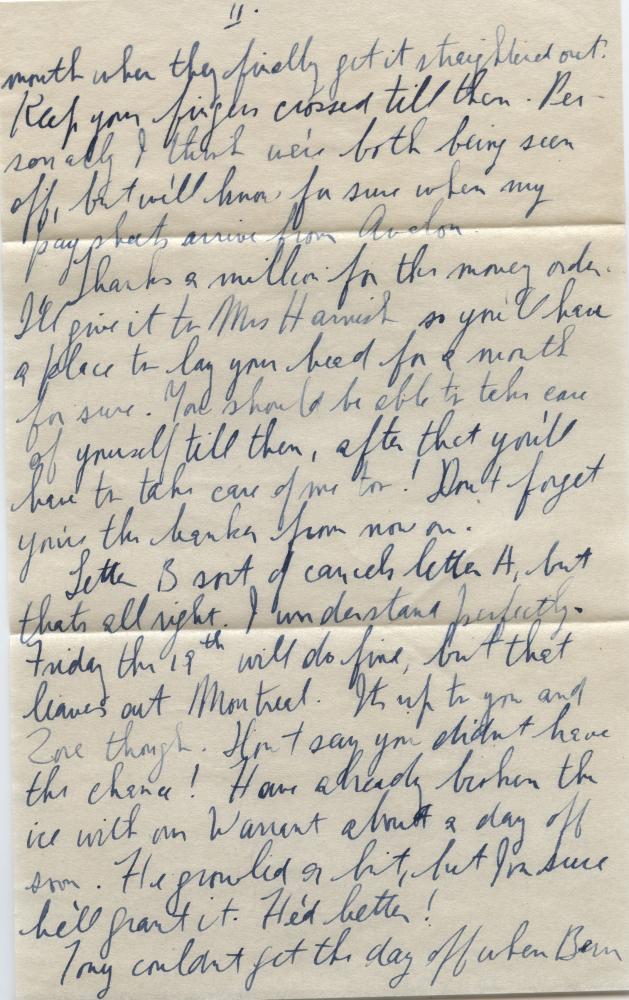 11.
month when they finally get it straightened out.
Keep your fingers crossed till then. Per-
sonally I think we're both being seen
off, but we'll know for sure when my
pay sheets arrive from Avalon.
Thanks a million for the money order.
I'll give it to Mrs Harnish so you'll have
a place to lay your head for a month
for sure. You should be able to take care
of yourself till then, after that you'll
have to take care of me too! Don't forget
you're the banker from now on.
Letter B sort of cancels letter A, but
thats all right. I understand perfectly.
Friday the 19th will do fine, but that
leaves out Montreal. Its up to you and
though. Don't say you didn't have
the chance! Have already broken the
ice with our Warrant about a day off
soon. He growled a bit, but I'm sure
he'll grant it. He'd better!
Tony couldnt get the day off when Bern